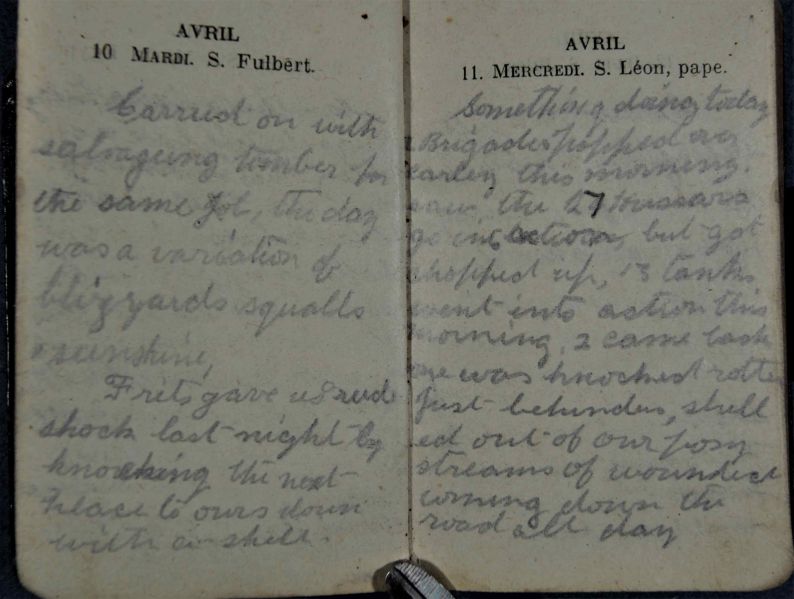 AVRIL
10 MARDI. S. Fulbert.
Carried on with
salvageing timber for
the same job, the day
was a variation of
blizzards squalls
sunshine,
Frits gave us rude
shock last night by
knocking the next
place to ours down
with a shell.
AVRIL
11. MERCREDI. S. Léon, pape.
Something doing today
Brigades popped over
earley this morning.
saw the 27 Hussars
go into action, but got
chopped up, 13 tanks
went into action this
morning, 2 came back
one was knocked rotten
just behind us, shell
ed out of our posy
streams of wounded
coming down the
road all day